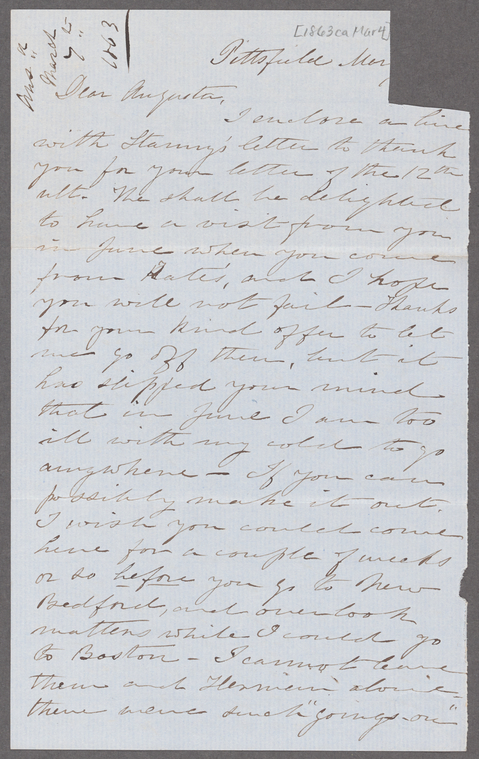 [1863 ca Mar 4]
Ans'd
March
7th
1863
Pittsfield Mar
Dear Augusta,
I enclose a line
with Stanny's letter to thank
you for your letter of the 12th
ult. We shall be delighted
to have a visit from you
in June when you come
from Kate's, and I hope
you will not fail – Thanks
for your kind offer to let
me go off then, but it
has slipped your mind
that in June I am too
ill with my cold to go
anywhere – If you can
possibly make it out.
I wish you could come
here for a couple of weeks
or so before you go to New
Bedford, and overlook
matters while I could go
to Boston – I cannot leave
them and Herman alone –
there were such "goings-on"